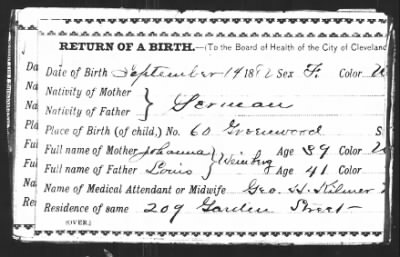 RETURN OF A BIRTH.—(To the Board of Health of the City of Cleveland
Date of Birth September 14 188 Sex F. Color W
Nativity of Mother
Nativity of Father } German
Place of Birth (of child,) No. 60 Greenwood S
Full name of Mother Johanna Age 39 Color W
Full name of Father Louis } Weinberg Age 41 Color
Name of Medical Attendant or Midwife Geo. H. Kilmer
Residence of same 209 Garden Street
(OVER.)